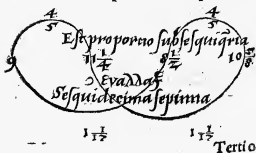 4/5 4/5
Est proportio subsesquiqrta
9 11 1/4 8 1/2 10 5/8
Sesquidecimasepinna
1 1/17 1 1/17
Tertio